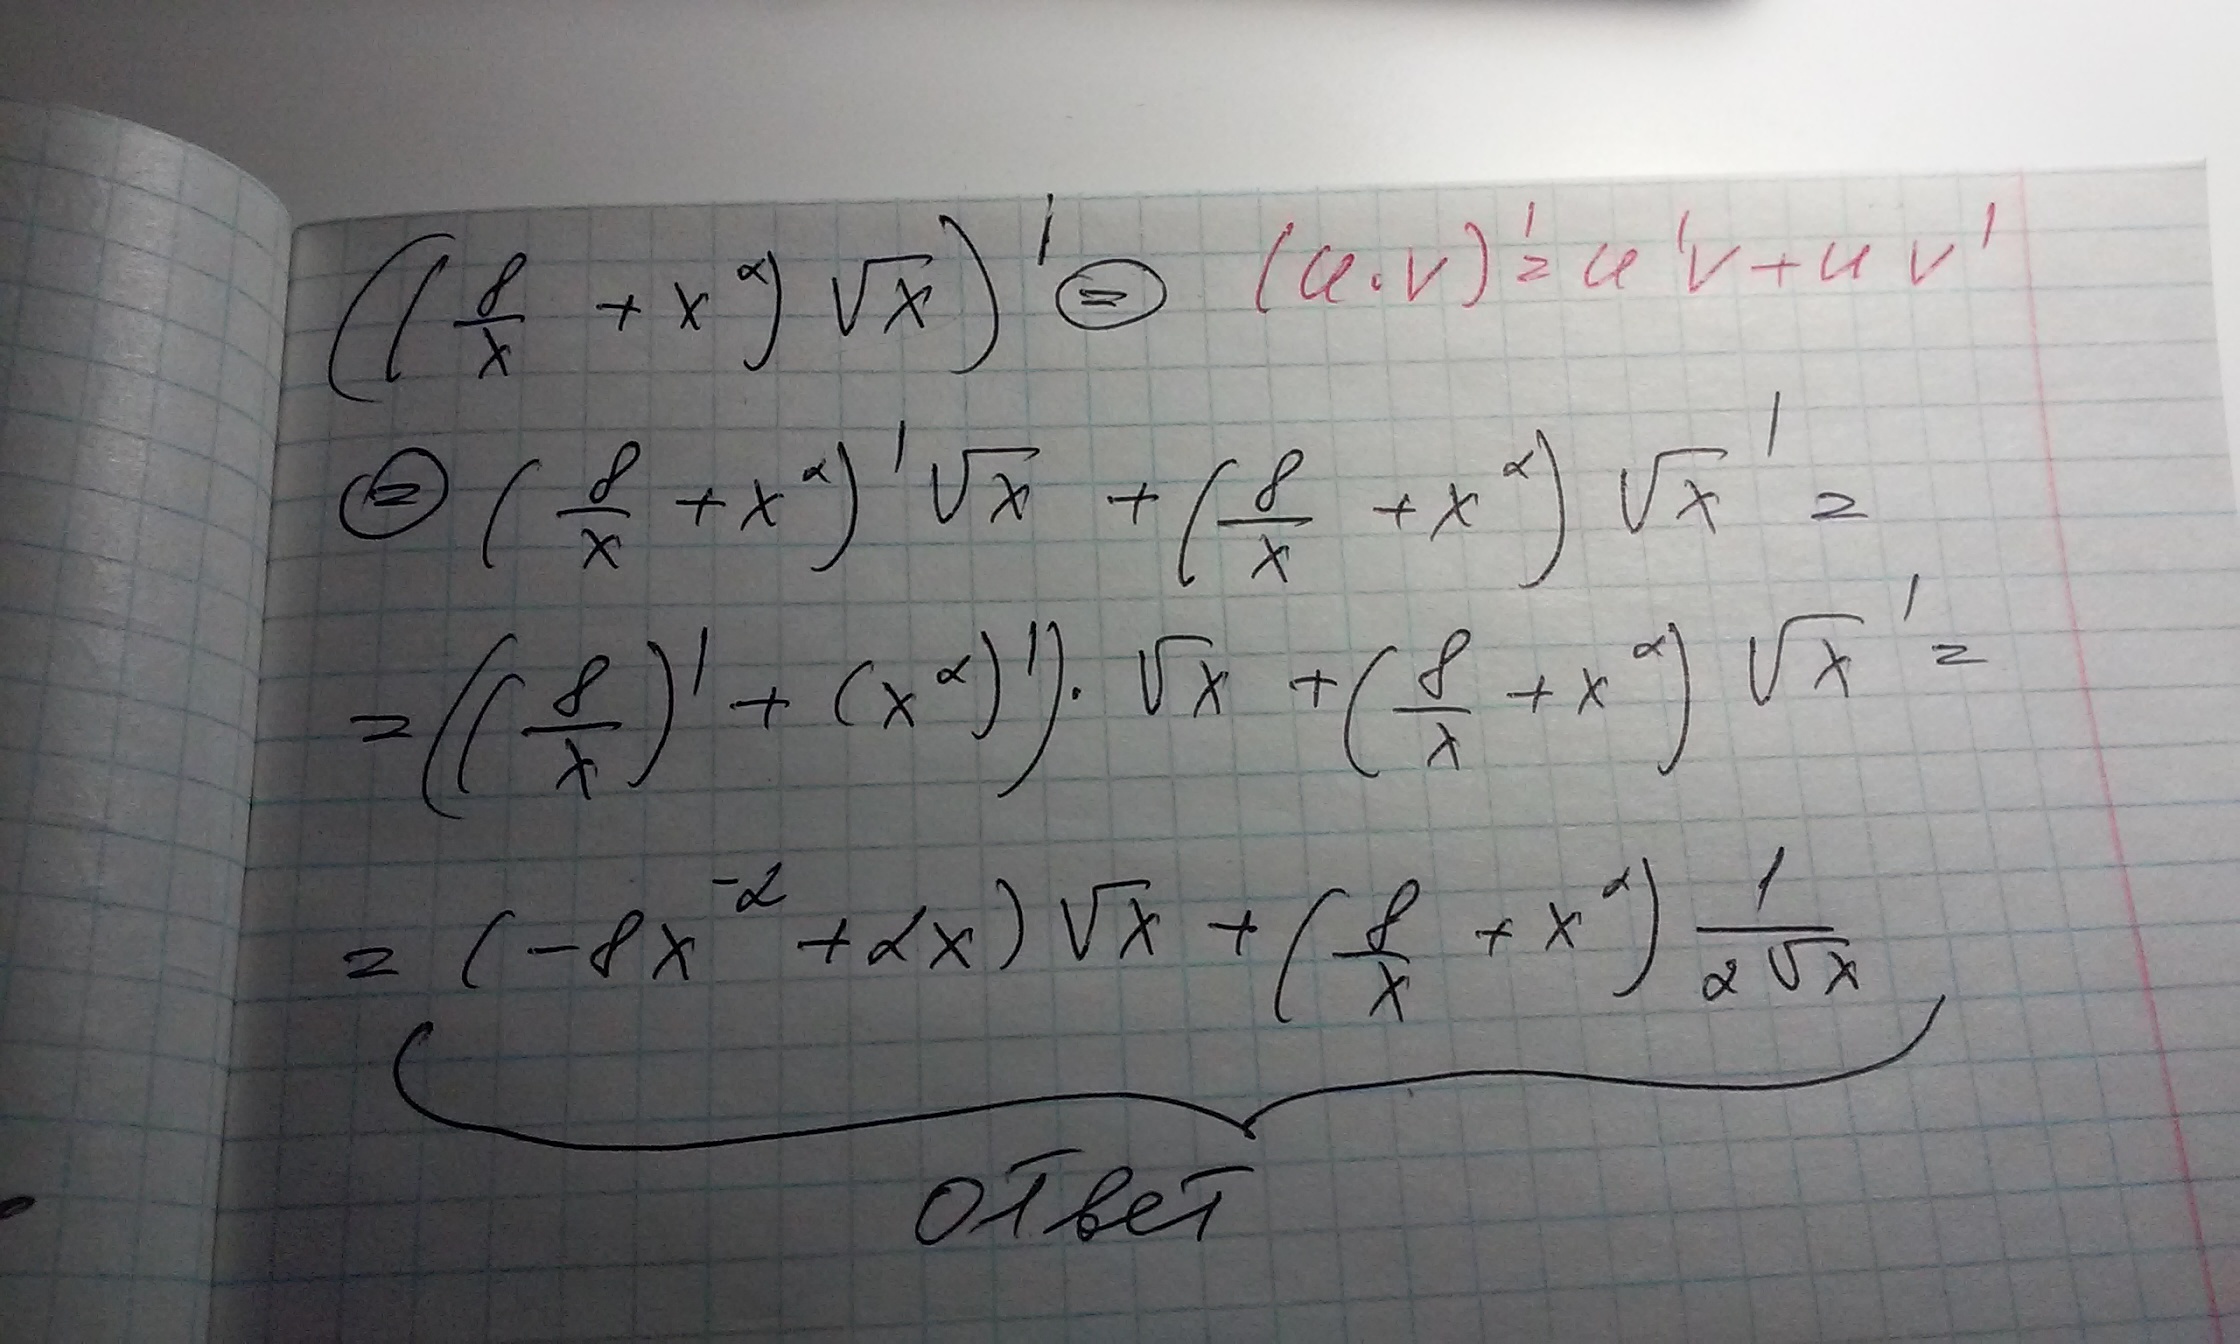 ((8/x + x²) √x)' ⊜ (u·v)' = u'v + uv'
⊜ (8/x + x²)' √x + (8/x + x²) √x' =
= ((8/x)' + (x²)')· √x + (8/x + x²) √x' =
= (-8x⁻² + 2x) √x + (8/x + x²) 1/(2√x)
ответ